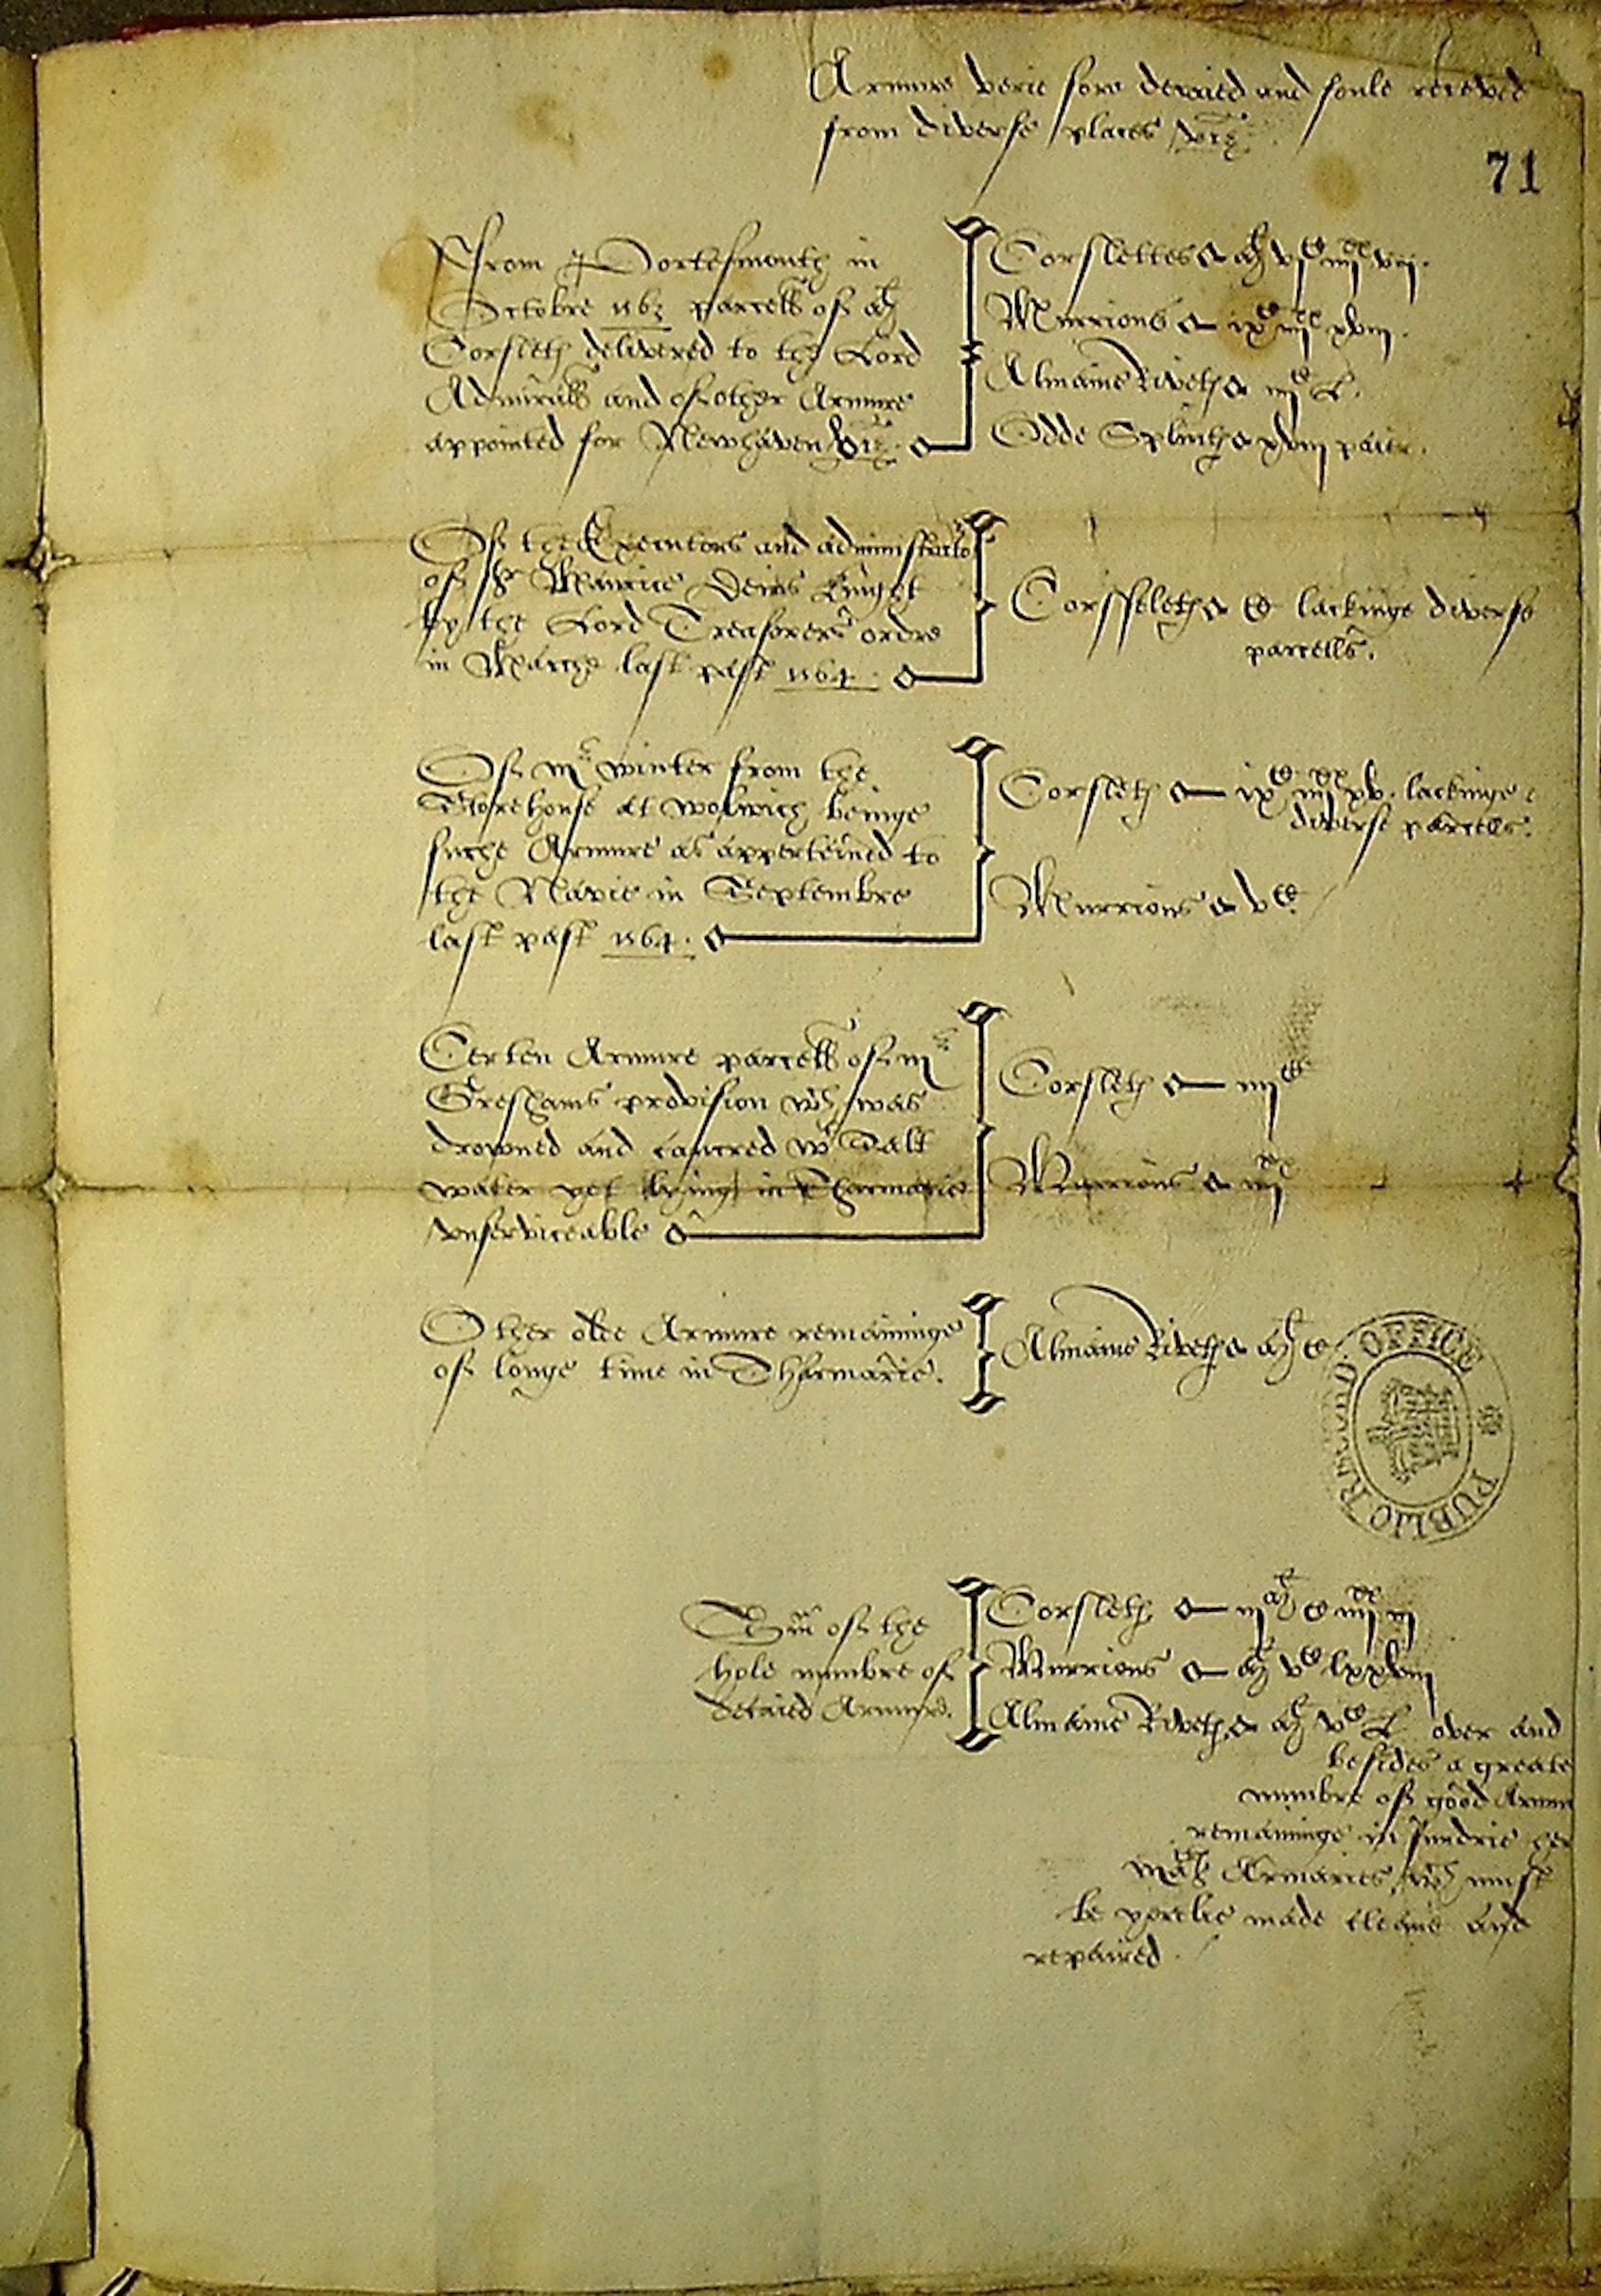 Armure verie sore decaied and foule receved
from diverse places viz
71
From Portesmouth in
Octobre 1563 parcell of
Corsletes delivered to the Lord
Admirall and of other Armure
appointed for Newhaven viz
Corslettes
Murrions
Almaine Rivetes
Odde Splintes xlviij paier.
Of the Executors and administrators
of Sr Maurice Denis knight
by the Lord Treasorers ordre
in Marche last past 1564
Corsseletes C lackinge diverse
parcells.
Of Mr Winter from the
Storehouse at Wolwich beinge
suche Armure as apperteined to
the Navie in Septembre
last past 1564.
Corsletes ixC iiijxx xv. lackinge
diverse parcells.
Murrions vC
Certen Armure parcell of Mr
Greshams provision wch was
drowned and cancred wt Salt
water yet lying in Tharmarie
unserviceable
Corsletes iiijC
Murrions iiijxx
Other olde Armure remaininge
of longe time in Tharmarie.
Almaine Rivetes Ml C
PUBLIC RECORD OFFICE
Sum of the
hole numbre of
decaied Armure.
Corsletes
Murrions Ml vC lxxviij
Almaine Rivetes Ml vC L over and
besides a greate
numbre of good Armure
remaininge in sundrie her
Mates Armaries wch must
be yerelie made cleane and
repaired.